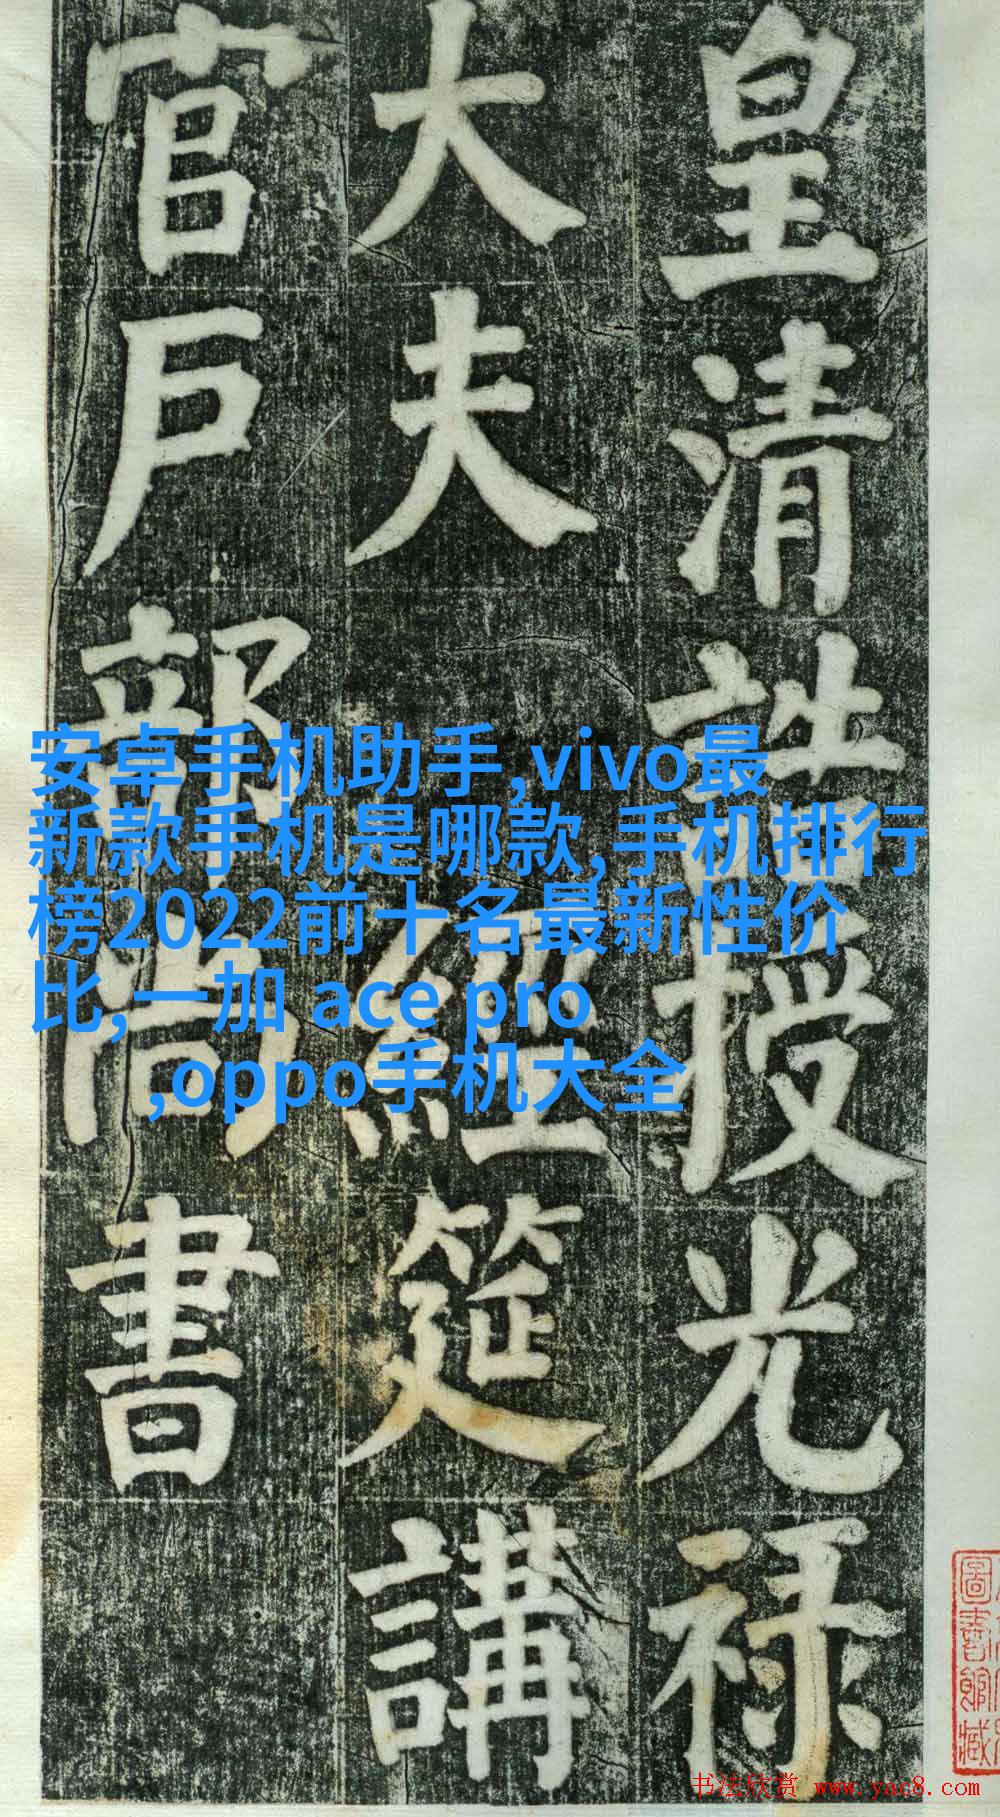 皇清誥授光禄
大夫
經筵講
官戶部尚書
安卓手机助手,vivo最
新款手机是哪款,手机排行
榜2022前十名最新性价
比,一加 ace pro
,oppo手机大全
圖書館藏
书法欣赏 www.yac8.com